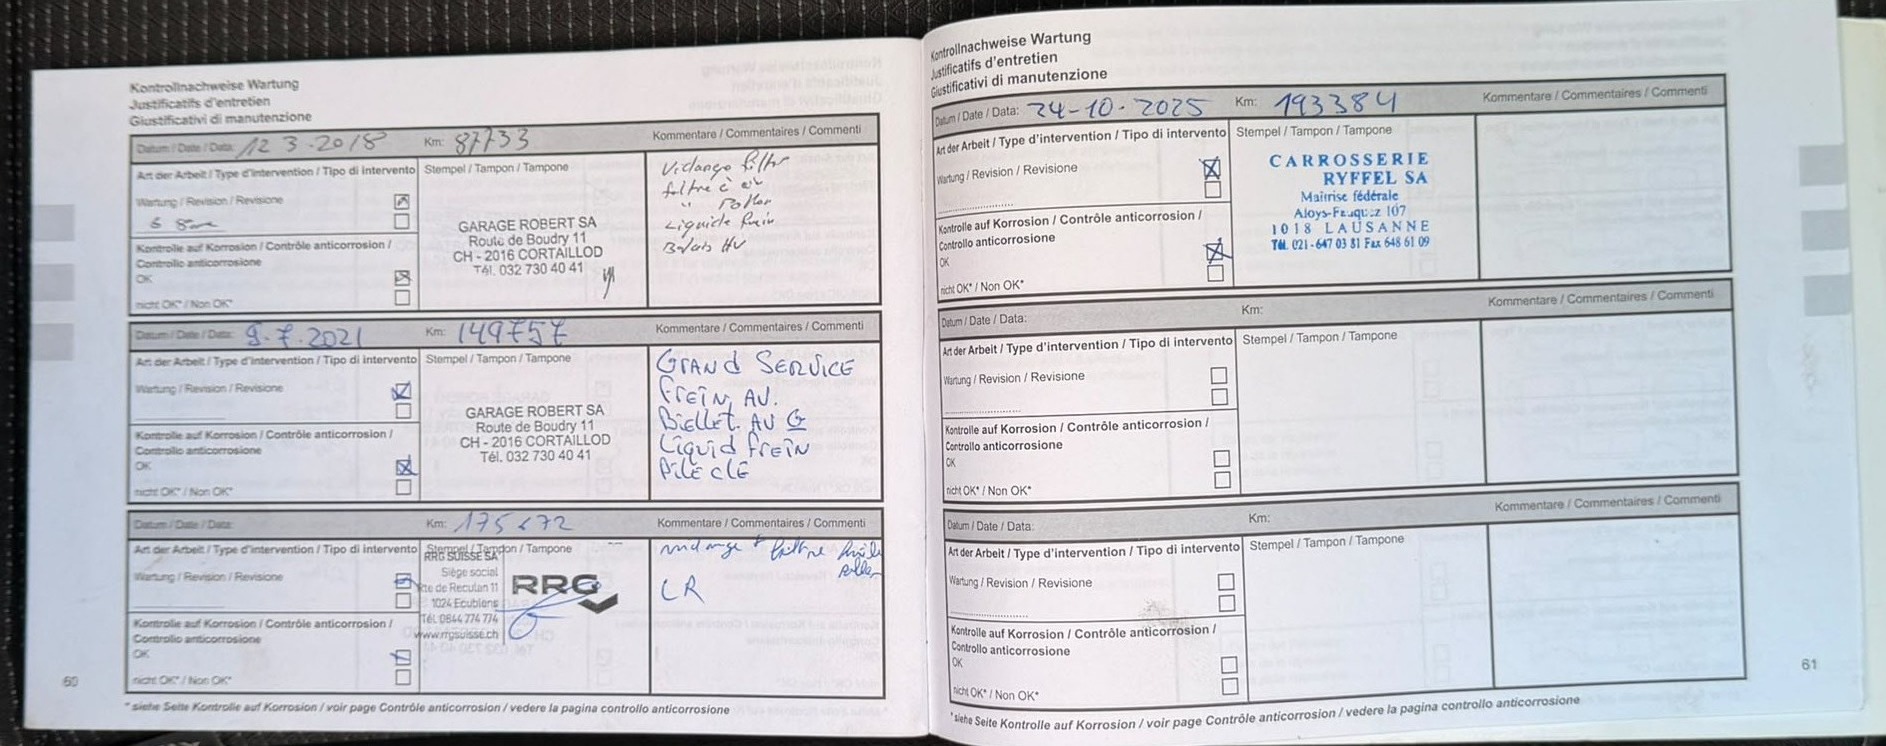 Kontrollnachweise Wartung
Justificatifs d'entretien
Giustificativi di manutenzione
Datum / Date / Data: 12 3.2018 Km: 87733 Kommentare / Commentaires / Commenti
Art der Arbeit / Type d'intervention / Tipo di intervento Stempel / Tampon / Tampone
Wartung / Revision / Revisione
Kontrolle auf Korrosion / Contrôle anticorrosion /
Controllo anticorrosione
OK
nicht OK* / Non OK*
GARAGE ROBERT SA
Route de Boudry 11
CH - 2016 CORTAILLOD
Tél. 032 730 40 41
Vidange filtre
filtre à air
Liquide frein
Balais AV
Datum / Date / Data: 9.7.2021 Km: 149757 Kommentare / Commentaires / Commenti
Art der Arbeit / Type d'intervention / Tipo di intervento Stempel / Tampon / Tampone
Wartung / Revision / Revisione
Kontrolle auf Korrosion / Contrôle anticorrosion /
Controllo anticorrosione
OK
nicht OK* / Non OK*
GARAGE ROBERT SA
Route de Boudry 11
CH - 2016 CORTAILLOD
Tél. 032 730 40 41
GRAND SERVICE
FREIN AV.
BIELLET. AV G
LIQUID FREIN
PILE CLE
Datum / Date / Data: Km: Kommentare / Commentaires / Commenti
Art der Arbeit / Type d'intervention / Tipo di intervento Stempel / Tampon / Tampone
Wartung / Revision / Revisione
Kontrolle auf Korrosion / Contrôle anticorrosion /
Controllo anticorrosione
OK
nicht OK* / Non OK*
RRG SUISSE SA
Siège social
Rte de Reculan 11
1024 Ecublens
Tél. 0844 774 774
www.rrgsuisse.ch
RRG
vidange + filtre huile
LR
60
* siehe Seite Kontrolle auf Korrosion / voir page Contrôle anticorrosion / vedere la pagina controllo anticorrosione
Kontrollnachweise Wartung
Justificatifs d'entretien
Giustificativi di manutenzione
Datum / Date / Data: 24-10-2025 Km: 193384 Kommentare / Commentaires / Commenti
Art der Arbeit / Type d'intervention / Tipo di intervento Stempel / Tampon / Tampone
Wartung / Revision / Revisione
Kontrolle auf Korrosion / Contrôle anticorrosion /
Controllo anticorrosione
OK
nicht OK* / Non OK*
CARROSSERIE
RYFFEL SA
Maîtrise fédérale
Aloys-Fauquez 107
1018 LAUSANNE
Tél. 021 - 647 03 81 Fax 648 61 09
Datum / Date / Data: Km: Kommentare / Commentaires / Commenti
Art der Arbeit / Type d'intervention / Tipo di intervento Stempel / Tampon / Tampone
Wartung / Revision / Revisione
Kontrolle auf Korrosion / Contrôle anticorrosion /
Controllo anticorrosione
OK
nicht OK* / Non OK*
Datum / Date / Data: Km: Kommentare / Commentaires / Commenti
Art der Arbeit / Type d'intervention / Tipo di intervento Stempel / Tampon / Tampone
Wartung / Revision / Revisione
Kontrolle auf Korrosion / Contrôle anticorrosion /
Controllo anticorrosione
OK
nicht OK* / Non OK*
61
* siehe Seite Kontrolle auf Korrosion / voir page Contrôle anticorrosion / vedere la pagina controllo anticorrosione